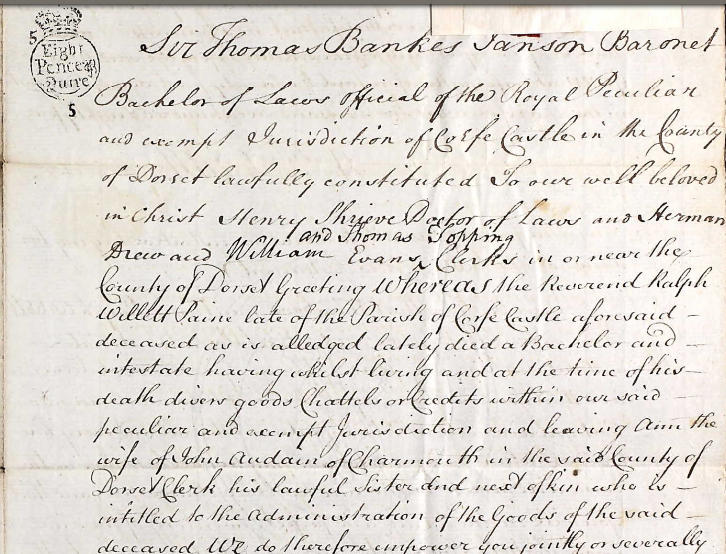 5
Eight
Pence
Quire
5
Sir Thomas Bankes Janson Baronet
Bachelor of Laws Official of the Royal Peculiar
and exempt Jurisdiction of Corfe Castle in the County
of Dorset lawfully constituted To our well beloved
in Christ Henry Shrieve Doctor of Laws and Herman
and Thomas Topping
Drew and William Evans ‸ Clerks in or near the
County of Dorset Greeting Whereas the Reverend Ralph
Willett Paine late of the Parish of Corfe Castle aforesaid –
deceased as is alledged lately died a Bachelor and –
intestate having whilst living and at the time of his –
death divers goods Chattels or Credits within our said –
peculiar and exempt Jurisdiction and leaving Ann the
wife of John Audain of Charmouth in the said County of
Dorset Clerk his lawful Sister and next of kin who is –
intitled to the Administration of the Goods of the said –
deceased We do therefore empower you jointly or severally